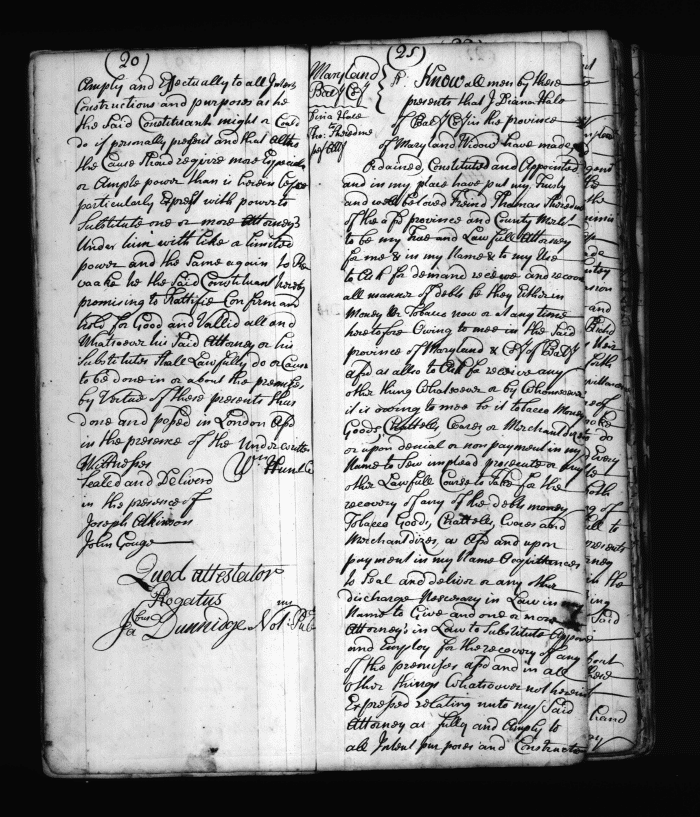 (20)
Amply and Effectually to all Intents
Constructions and purposes as he
the Said Constituant might or Could
do if personally present and that altho
the Cause Should require more Especiale
or Ample power than is herein before
particularly Exprest with power to
Substitute one or more Attorney's
Under him with like a limited
power and the Same again to Re
voake he the Said Constituant hereby
promising to Rattifie Confirm and
hold for Good and Vallid all and
Whatsoever his Said Attorney or his
Substitutes Shall Lawfully do or Cause
to be done in or about the premises
by Vertue of these presents thus
done and passed in London Afsd
in the presence of the Under written
Wittnesses Wm Hunt
Sealed and Deliverd
in the presence of
Joseph Atkinson
John Gouge
Quod attestator
Rogatus
Jacous Dunnidge Not: Pub
(25)
Maryland
Balt Cty
Hale
Tho:
pr Atty
Know all men by these
presents that I Diana Hale
of Balt Cty in the province
of Maryland Widow have made
Ordained Constituted and Appointed
and in my place have put my Trusty
and well beloved Freind Thomas
of the afsd province and County Mercht
to be my True and Lawfull Attorney
for me & in my Name & to my Use
to Ask for demand receive and recover
all manner of debts be they Either in
Money Or Tobacco now or at any time
heretofore Owing to mee in the Said
province of Maryland & Cty of Balt
afsd as allso to Ask for receive any
other thing Whatsoever or by Whomsoever
it is owing to mee be it tobacco Money
Goods, Chattells, Wares or Merchandizes
or upon denial or non payment in my
Name to Sew implead prosecute or Any
other Lawfull Course to take for the
recovery of any of the debts money
Tobacco Goods, Chattells, Wares and
Merchandizes, as Afsd and upon
payment in my Name Acquittances
to Seal and deliver or any other
discharge Nescesary in Law in my
Name to Give and one or more
Attorney's in Law to Substitute Appoint
and Employ for the recovery of any
of the premises afsd and in all
other things Whatsoever not herein
Expressed relating unto my Said
Attorney as fully and Amply to
all Intent purposes and Constructo